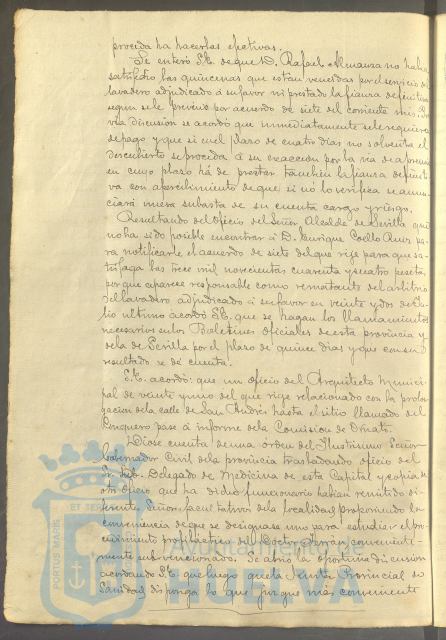 proceda ha hacerlas efectivas.
Se enteró S.E. de que D. Rafael Almanza no había
satisfecho las quincenas que están vencidas por el servicio del
lavadero adjudicado á su favor ni prestado la fianza definitiva
segun se le previno por acuerdo de siete del corriente mes. Pré
via discusion se acordó que inmediatamente se le requiera
de pago y que si en el plazo de cuatro dias no solventa el
descubierto se proceda á su exaccion por la via de apremio
en cuyo plazo há de prestar tambien la fianza definiti
va con apercibimiento de que si nó lo verifica se anun
ciará nueva subasta de su cuenta cargo y riesgo.
Resultando del oficio del Señor Alcalde de Sevilla que
no ha sido posible encontrar á D. Enrique Coello Ruiz pa
ra notificarle el acuerdo de siete del que rije para que sa
tisfaga las trece mil novecientas cuarenta y cuatro pesetas
porque aparece responsable como rematante del arbitrio
del lavadero adjudicado á su favor en veinte y dos de Ju
lio ultimo acordó S.E. que se hagan los llamamientos
necesarios en los Boletines oficiales de esta provincia y
de la de Sevilla por el plazo de quince dias y que con su
resultado se dé cuenta.
S.E. acordó: que un oficio del Arquitecto Munici
pal de veinte y uno del que rije relacionado con la prolon
gacion de la calle de San Andres hasta el sitio llamado del
Conquero pase á informe de la Comision de Ornato.
Dióse cuenta de una órden del Ilustrisimo Señor
Gobernador Civil de la provincia trasladando oficio del
Sr. Sub-Delegado de Medicina de esta Capital y copia de
otro oficio que ha dicho funcionario habian remitido di
ferentes Señores facultativos de la localidad proponiendo la
conveniencia de que se designase uno para estudiar el pro
cedimiento profiláctico del Doctor Ferrán conveniente-
mente subvencionado. Se abrió la oportuna discusion
acordando S.E. que luego que la Junta Provincial de
Sanidad disponga lo que juzgue más conveniente
PORTUS MARIS
ET
Ayuntamiento de
HUELVA